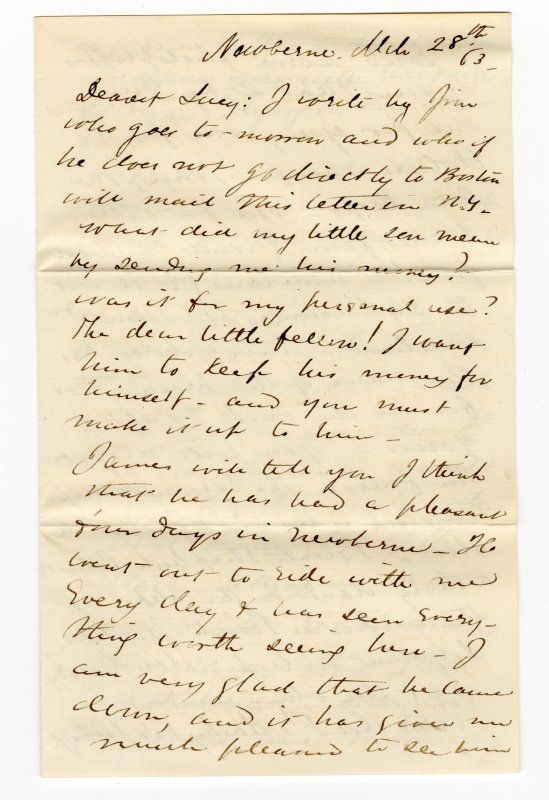 Newberne. Mch 28th 63-
Dearest Lucy: I write by Jim
who goes to-morrow and who if
he does not go directly to Boston
will mail this letter in N.Y-
What did my little son mean
by sending me his money?
was it for my personal use?
The dear little fellow! I want
him to keep his money for
himself- and you must
make it up to him-
James will tell you I think
that he has had a pleasant
four days in Newberne- He
went out to ride with me
Every day & has seen every-
thing worth seeing here- I
am very glad that he came
down, and it has given me
much pleasure to see him